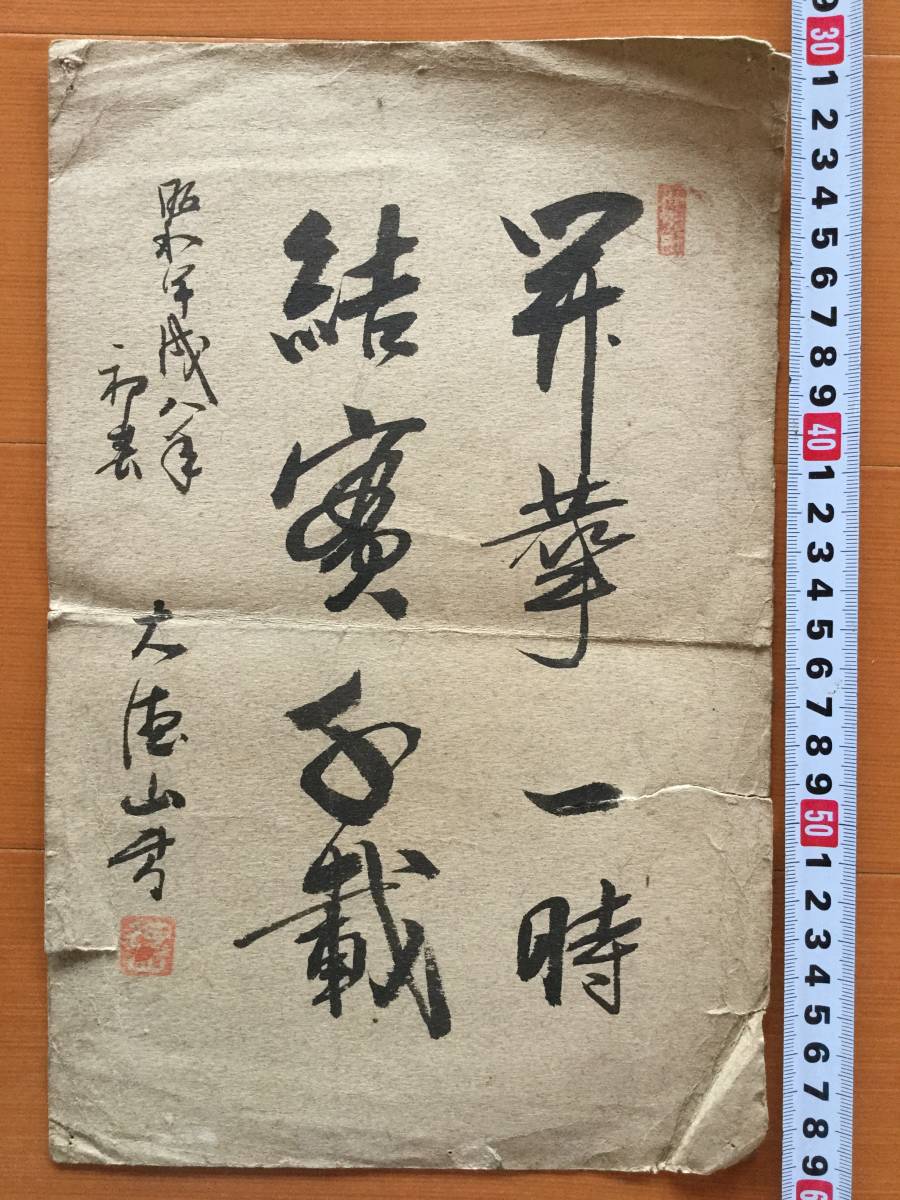 開華一時
結實千載
昭和甲戌八年
初春
大德山
9 30 1 2 3 4 5 6 7 8 9 40 1 2 3 4 5 6 7 8 9 50 1 2 3 4 5 6 7 8 9 6